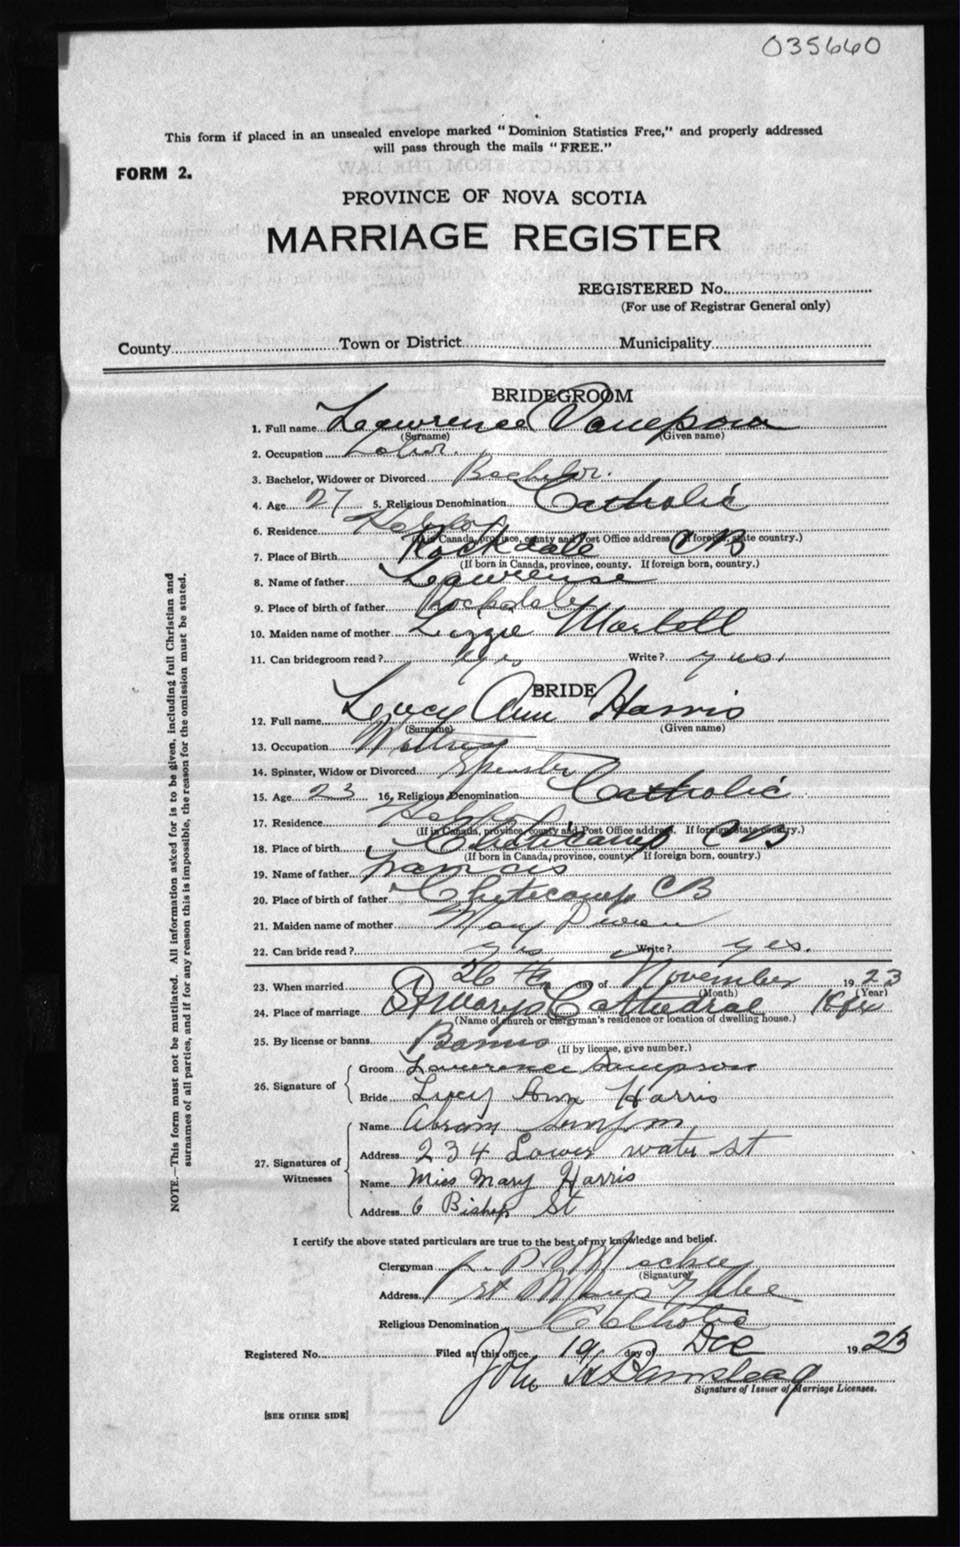 035660
This form if placed in an unsealed envelope marked "Dominion Statistics Free," and properly addressed
will pass through the mails "FREE."
FORM 2.
PROVINCE OF NOVA SCOTIA
MARRIAGE REGISTER
REGISTERED No.
(For use of Registrar General only)
County Town or District Municipality
BRIDEGROOM
1. Full name Lawrence
(Surname) (Given name)
2. Occupation Labor.
3. Bachelor, Widower or Divorced Bachelor.
4. Age 27 5. Religious Denomination Catholic
6. Residence Halifax
(If in Canada, province, county and Post Office address. If foreign, state country.)
7. Place of Birth Rockdale CB
(If born in Canada, province, county. If foreign born, country.)
8. Name of father Lawrense
9. Place of birth of father Rockdale
10. Maiden name of mother Lizzie Martell
11. Can bridegroom read? yes Write? yes.
BRIDE
12. Full name Lucy Ann Harris
(Surname) (Given name)
13. Occupation
14. Spinster, Widow or Divorced Spinster
15. Age 23 16. Religious Denomination Catholic
17. Residence Halifax
(If in Canada, province, county and Post Office address. If foreign state country.)
18. Place of birth Cheticamp CB
(If born in Canada, province, county. If foreign born, country.)
19. Name of father Francis
20. Place of birth of father Cheticamp CB
21. Maiden name of mother Mary
22. Can bride read? yes Write? yes.
23. When married 26th day of November 1923
(Month) (Year)
24. Place of marriage St Marys Cathedral Hfx
(Name of church or clergyman's residence or location of dwelling house.)
25. By license or banns Banns
(If by license, give number.)
26. Signature of
Groom Lawrence Sampson
Bride Lucy Ann Harris
27. Signatures of Witnesses
Name Abram
Address 234 Lower water st
Name Miss Mary Harris
Address 6 Bishop St
I certify the above stated particulars are true to the best of my knowledge and belief.
Clergyman
(Signature)
Address St Marys Glebe
Religious Denomination Catholic
Registered No. Filed at this office 19 day of Dec 1923
John
Signature of Issuer of Marriage Licenses.
[SEE OTHER SIDE]
NOTE.—This form must not be mutilated. All information asked for is to be given, including full Christian and
surnames of all parties, and if for any reason this is impossible, the reason for the omission must be stated.